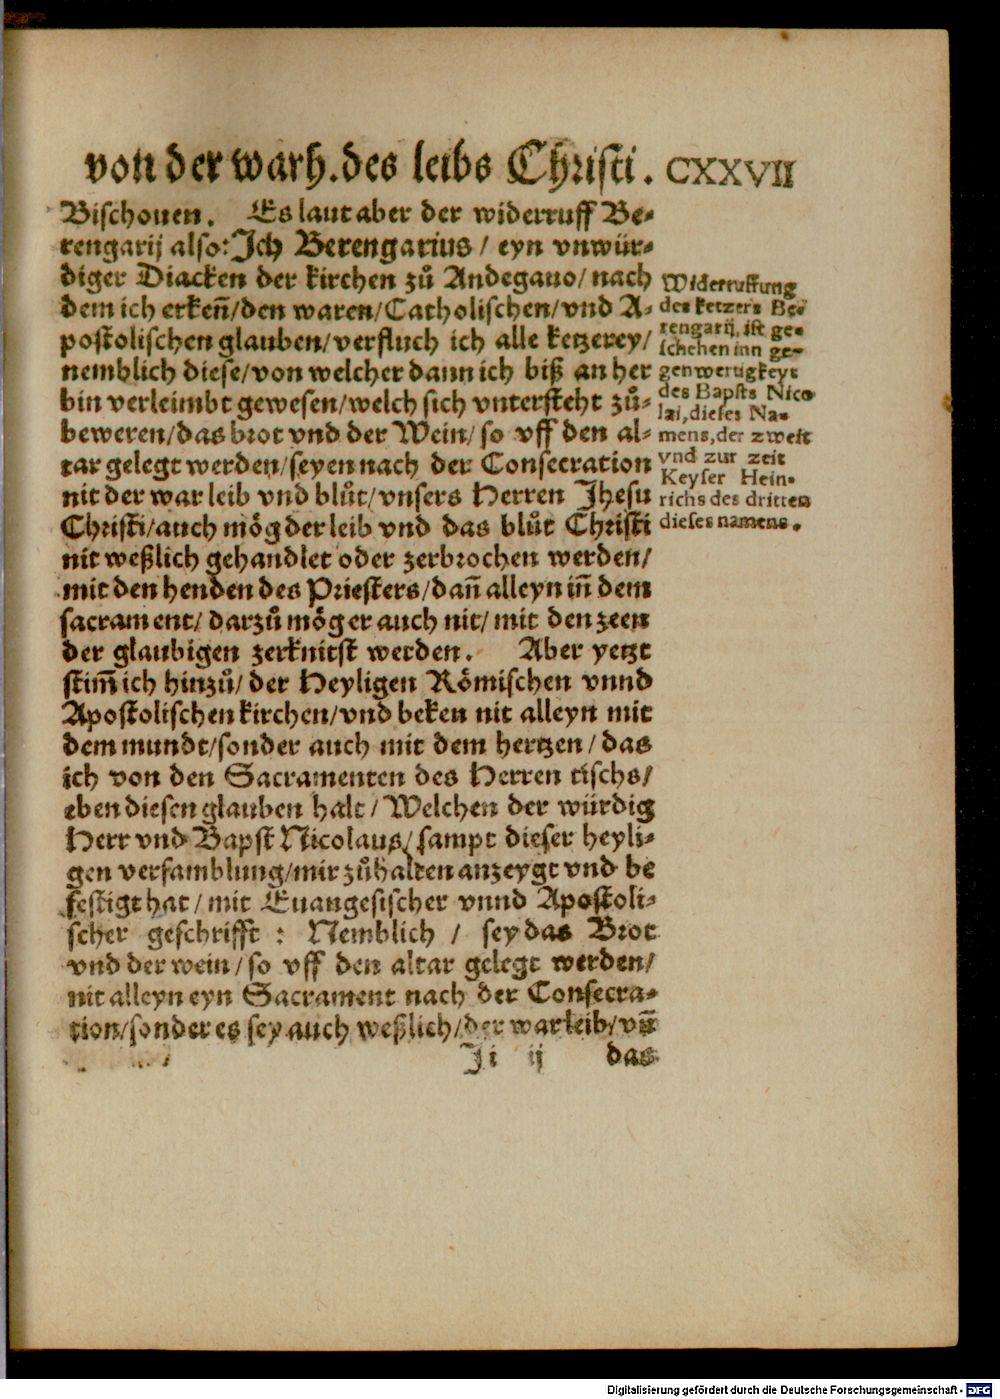 von der warh. des leibs Christi. CXXVII
Bischouen. Es laut aber der widerruff Be-
rengarij also: Ich Berengarius / eyn vnwür-
diger Diacken der kirchen zů Andegauo / nach
dem ich erkeñ / den waren / Catholischen / vnd A-
postolischen glauben / verfluch ich alle ketzerey /
nemblich diese / von welcher dann ich biß an her
bin verleimbt gewesen / welch sich vntersteht zů-
beweren / das brot vnd der Wein / so vff den al-
tar gelegt werden / seyen nach der Consecration
nit der war leib vnd blůt / vnsers Herren Jhesu
Christi / auch mög der leib vnd das blůt Christi
nit weßlich gehandlet oder zerbrochen werden /
mit den henden des Priesters / dañ alleyn iñ dem
sacrament / darzů mög er auch nit / mit den zeen
der glaubigen zerknitst werden. Aber yetzt
stim̃ ich hinzů / der Heyligen Römischen vnnd
Apostolischen kirchen / vnd beken nit alleyn mit
dem mundt / sonder auch mit dem hertzen / das
ich von den Sacramenten des Herren tischs /
eben diesen glauben halt / Welchen der würdig
Herr vnd Bapst Nicolaus / sampt dieser heyli-
gen versamblung / mir zůhalten anzeygt vnd be
festigt hat / mit Euangesischer vnnd Apostoli-
scher geschrifft : Nemblich / sey das Brot
vnd der wein / so vff den altar gelegt werden /
nit alleyn eyn Sacrament nach der Consecra-
tion / sonder es sey auch weßlich / der war leib / vñ
Ji ij das
Widerruffung
des ketzers Be-
rengarij, ist ge-
schehen inn ge-
genwertigkeyt
des Bapsts Nico
lai, dieses Na-
mens, der zweit
vnd zur zeit
Keyser Hein-
richs des dritten
dieses namens.
Digitalisierung gefördert durch die Deutsche Forschungsgemeinschaft - DFG